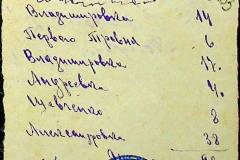 Владимировка 14
Первого Травня 6
Владимировка 17.
Андреевка 4.
Шевченко 8
Александровка 38